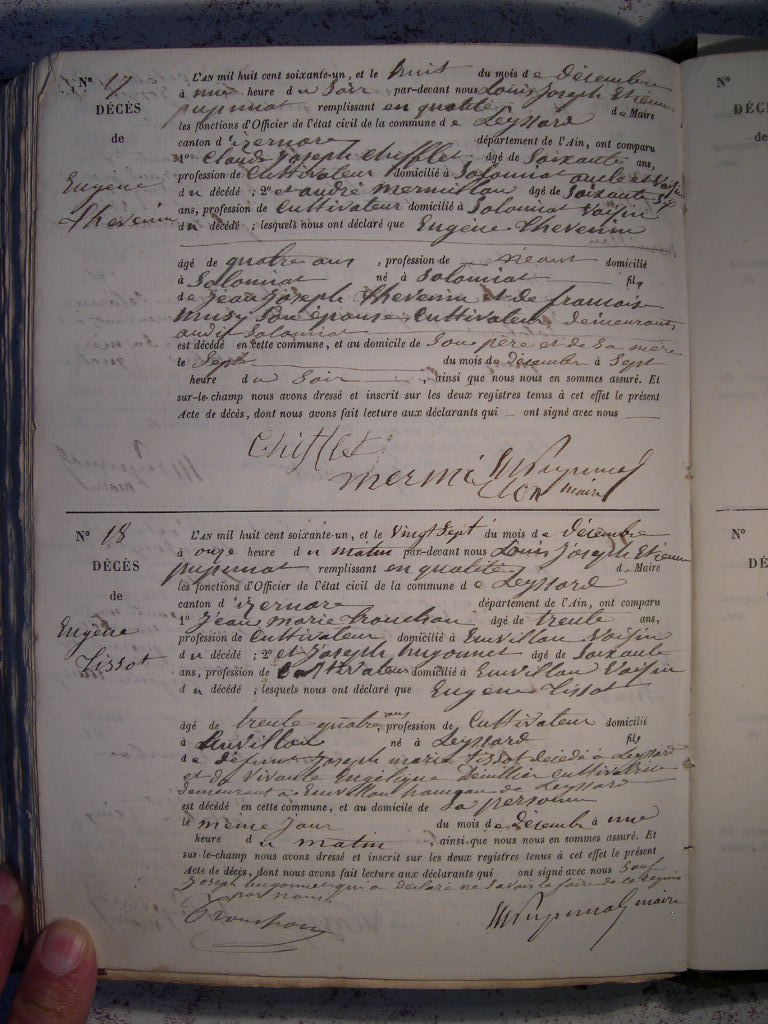 N° 17
DÉCÈS
de
Eugène
Thevenin
L'AN mil huit cent soixante-un, et le huit du mois de décembre
à une heure du Soir par-devant nous Louis Joseph Etienne
pupunat remplissant en qualité de Maire
les fonctions d'Officier de l'état civil de la commune de Leyssard
canton d'izernore département de l'Ain, ont comparu
1° Claude Joseph Chifflet, âgé de Soixante ans,
profession de Cultivateur domicilié à Solomiat oncle et Voisin
du décédé ; 2° et andré mermillon âgé de Soixante
ans, profession de Cultivateur domicilié à Solomiat Voisin
du décédé ; lesquels nous ont déclaré que Eugène Thevenin
âgé de quatre ans, profession de néant domicilié
à Solomiat né à Solomiat fils
de Jean Joseph Thevenin et de francoise
musy Son épouse Cultivateurs demeurants
audit Solomiat
est décédé en cette commune, et au domicile de Son père et de Sa mère
le Sept du mois de décembre à Sept
heure du Soir, ainsi que nous nous en sommes assuré. Et
sur-le-champ nous avons dressé et inscrit sur les deux registres tenus à cet effet le présent
Acte de décès, dont nous avons fait lecture aux déclarants qui ont signé avec nous
Chifflet
mermillon
pupunat
maire
N° 18
DÉCÈS
de
Eugène
Tissot
L'AN mil huit cent soixante-un, et le Vingt Sept du mois de décembre
à onze heure du matin par-devant nous Louis Joseph Etienne
pupunat remplissant en qualité de Maire
les fonctions d'Officier de l'état civil de la commune de Leyssard
canton d'izernore département de l'Ain, ont comparu
1° Jean marie trouchon âgé de trente ans,
profession de Cultivateur domicilié à Envillon Voisin
du décédé ; 2° et Joseph hugonnet âgé de Soixante
ans, profession de Cultivateur domicilié à Envillon Voisin
du décédé ; lesquels nous ont déclaré que Eugène Tissot
âgé de trente quatre ans profession de Cultivateur domicilié
à Envillon né à Leyssard fils
de défunt Joseph marie Tissot décédé à Leyssard
et de Vivante Engélique cultivatrice
demeurant à Envillon hameau de Leyssard
est décédé en cette commune, et au domicile de Sa personne
le même jour du mois de décembre à une
heure du matin, ainsi que nous nous en sommes assuré. Et
sur-le-champ nous avons dressé et inscrit sur les deux registres tenus à cet effet le présent
Acte de décès, dont nous avons fait lecture aux déclarants qui ont signé avec nous Sauf
Joseph hugonnet qui a déclaré ne Savoir le faire de ce requis
par nous
Trouchon
pupunat maire
N°
DÉC
de
N°
DÉ